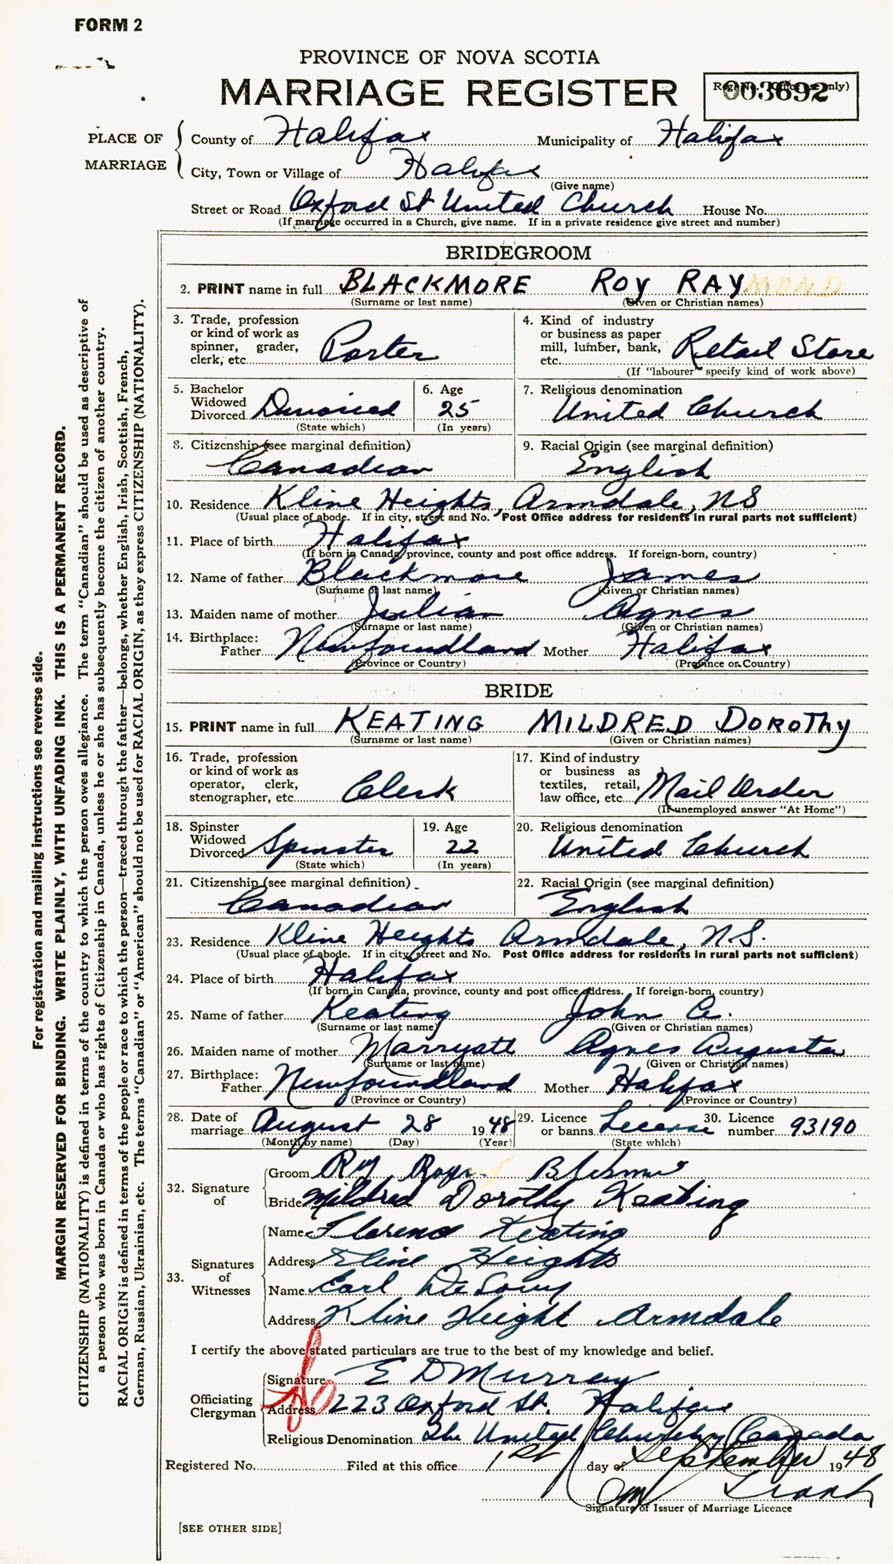 FORM 2
PROVINCE OF NOVA SCOTIA
MARRIAGE REGISTER
003692
PLACE OF MARRIAGE
County of Halifax Municipality of Halifax
City, Town or Village of Halifax
(Give name)
Street or Road Oxford St United Church House No.
(If marriage occurred in a Church, give name. If in a private residence give street and number)
BRIDEGROOM
2. PRINT name in full BLACKMORE ROY RAYMOND
(Surname or last name) (Given or Christian names)
3. Trade, profession or kind of work as spinner, grader, clerk, etc. Porter
4. Kind of industry or business as paper mill, lumber, bank, etc. Retail Store
(If "labourer" specify kind of work above)
5. Bachelor Widowed Divorced Divorced
(State which)
6. Age 25
(In years)
7. Religious denomination United Church
8. Citizenship (see marginal definition)
Canadian
9. Racial Origin (see marginal definition)
English
10. Residence Kline Heights, Armdale, NS
(Usual place of abode. If in city, street and No. Post Office address for residents in rural parts not sufficient)
11. Place of birth Halifax
(If born in Canada, province, county and post office address. If foreign-born, country)
12. Name of father Blackmore James
(Surname or last name) (Given or Christian names)
13. Maiden name of mother Julian Agnes
(Surname or last name) (Given or Christian names)
14. Birthplace: Father Newfoundland Mother Halifax
(Province or Country) (Province or Country)
BRIDE
15. PRINT name in full KEATING MILDRED DOROTHY
(Surname or last name) (Given or Christian names)
16. Trade, profession or kind of work as operator, clerk, stenographer, etc. Clerk
17. Kind of industry or business as textiles, retail, law office, etc. Mail Order
(If unemployed answer "At Home")
18. Spinster Widowed Divorced Spinster
(State which)
19. Age 22
(In years)
20. Religious denomination United Church
21. Citizenship (see marginal definition)
Canadian
22. Racial Origin (see marginal definition)
English
23. Residence Kline Heights Armdale, N.S.
(Usual place of abode. If in city, street and No. Post Office address for residents in rural parts not sufficient)
24. Place of birth Halifax
(If born in Canada, province, county and post office address. If foreign-born, country)
25. Name of father Keating John A.
(Surname or last name) (Given or Christian names)
26. Maiden name of mother Marryatt Agnes Augusta
(Surname or last name) (Given or Christian names)
27. Birthplace: Father Newfoundland Mother Halifax
(Province or Country) (Province or Country)
28. Date of marriage August 28 1948
(Month by name) (Day) (Year)
29. Licence or banns License
(State which)
30. Licence number 93190
32. Signature of
Groom Roy
Bride Mildred Dorothy Keating
33. Signatures of Witnesses
Name Florence Keating
Address Kline Heights
Name Earl
Address Kline Height Armdale
I certify the above stated particulars are true to the best of my knowledge and belief.
Officiating Clergyman
Signature E D Murray
Address 223 Oxford St. Halifax
Religious Denomination The United Church of Canada
Registered No. Filed at this office 1st day of September 1948
Signature of Issuer of Marriage Licence
[SEE OTHER SIDE]
For registration and mailing instructions see reverse side.
MARGIN RESERVED FOR BINDING. WRITE PLAINLY, WITH UNFADING INK. THIS IS A PERMANENT RECORD.
CITIZENSHIP (NATIONALITY) is defined in terms of the country to which the person owes allegiance. The term "Canadian" should be used as descriptive of
a person who was born in Canada or who has rights of Citizenship in Canada, unless he or she has subsequently become the citizen of another country.
RACIAL ORIGIN is defined in terms of the people or race to which the person—traced through the father—belongs, whether English, Irish, Scottish, French,
German, Russian, Ukrainian, etc. The terms "Canadian" or "American" should not be used for RACIAL ORIGIN, as they express CITIZENSHIP (NATIONALITY).